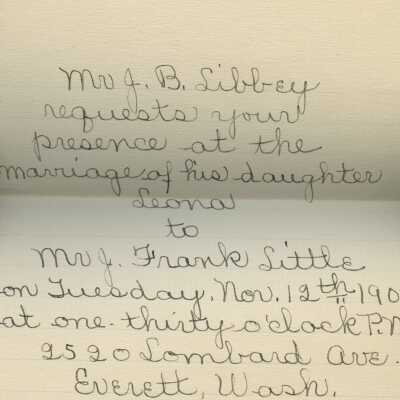 Mr J. B. Libbey
requests your
presence at the
marriage of his daughter
Leona
to
Mr J. Frank Little
on Tuesday, Nov. 12th 190
at one-thirty o'clock P.M
2520 Lombard Ave.
Everett, Wash.